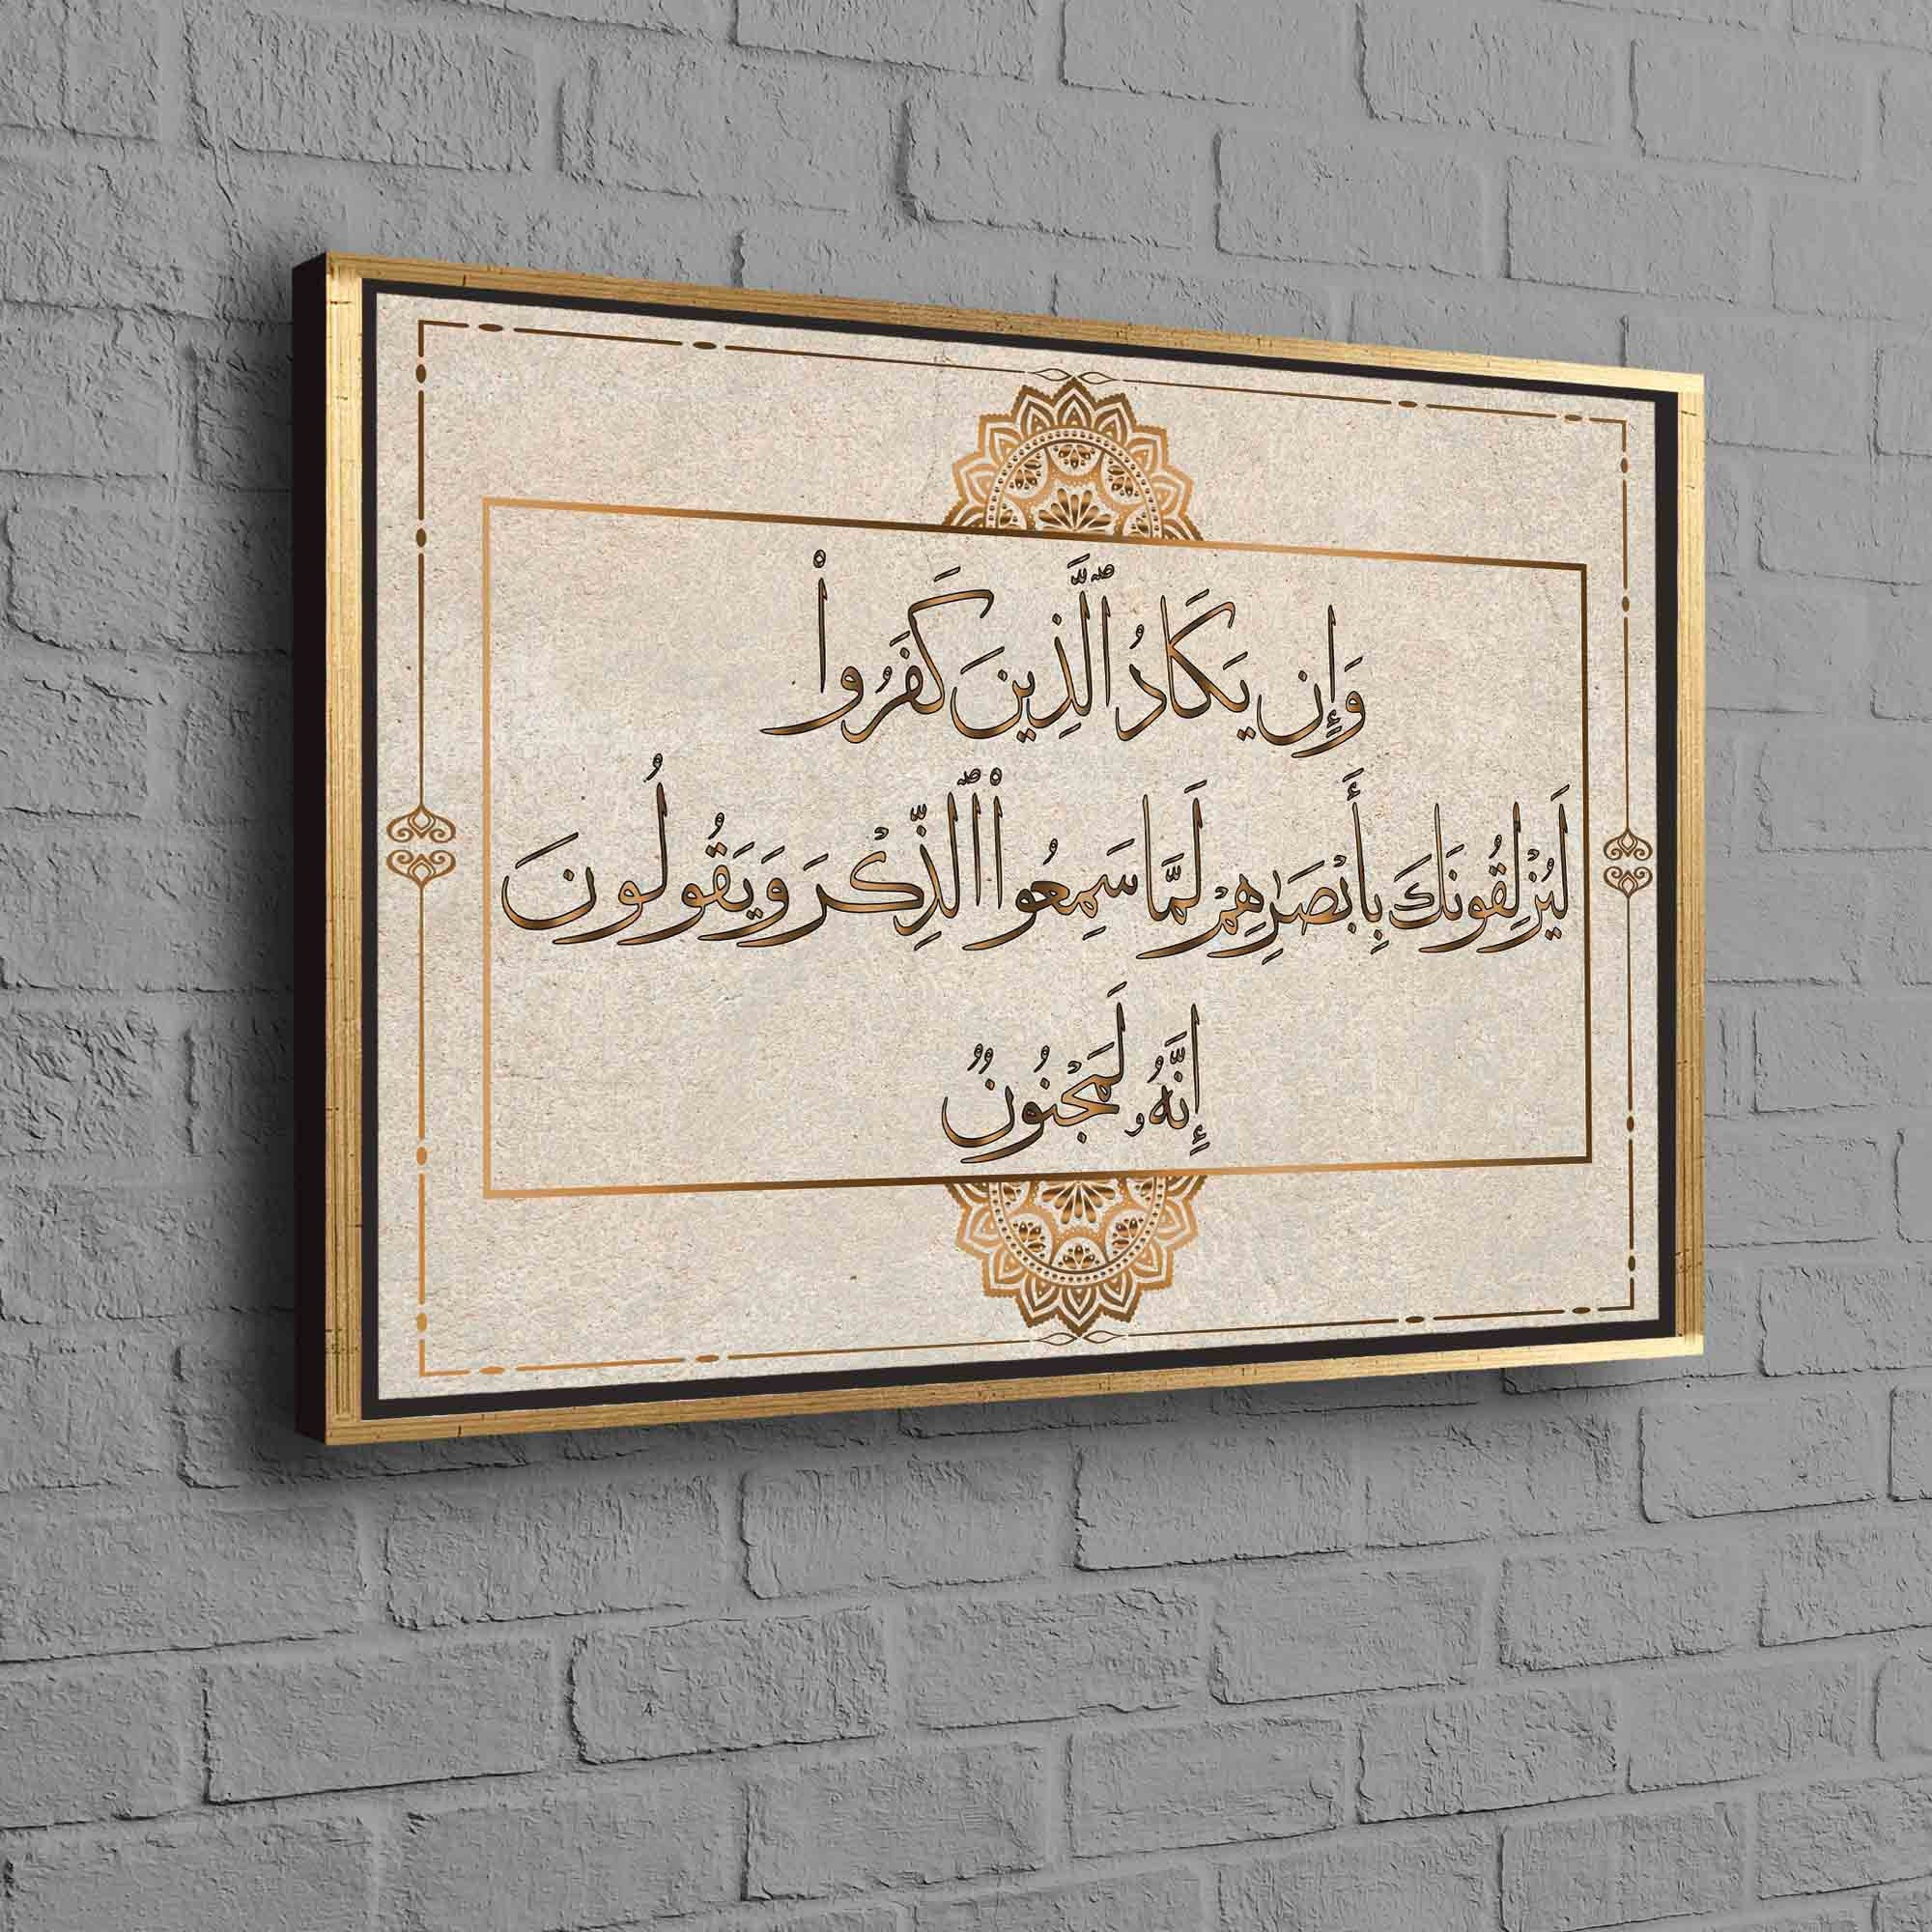 وَإِن يَكَادُ ٱلَّذِينَ كَفَرُوا۟
لَيُزْلِقُونَكَ بِأَبْصَٰرِهِمْ لَمَّا سَمِعُوا۟ ٱلذِّكْرَ وَيَقُولُونَ
إِنَّهُۥ لَمَجْنُونٌ